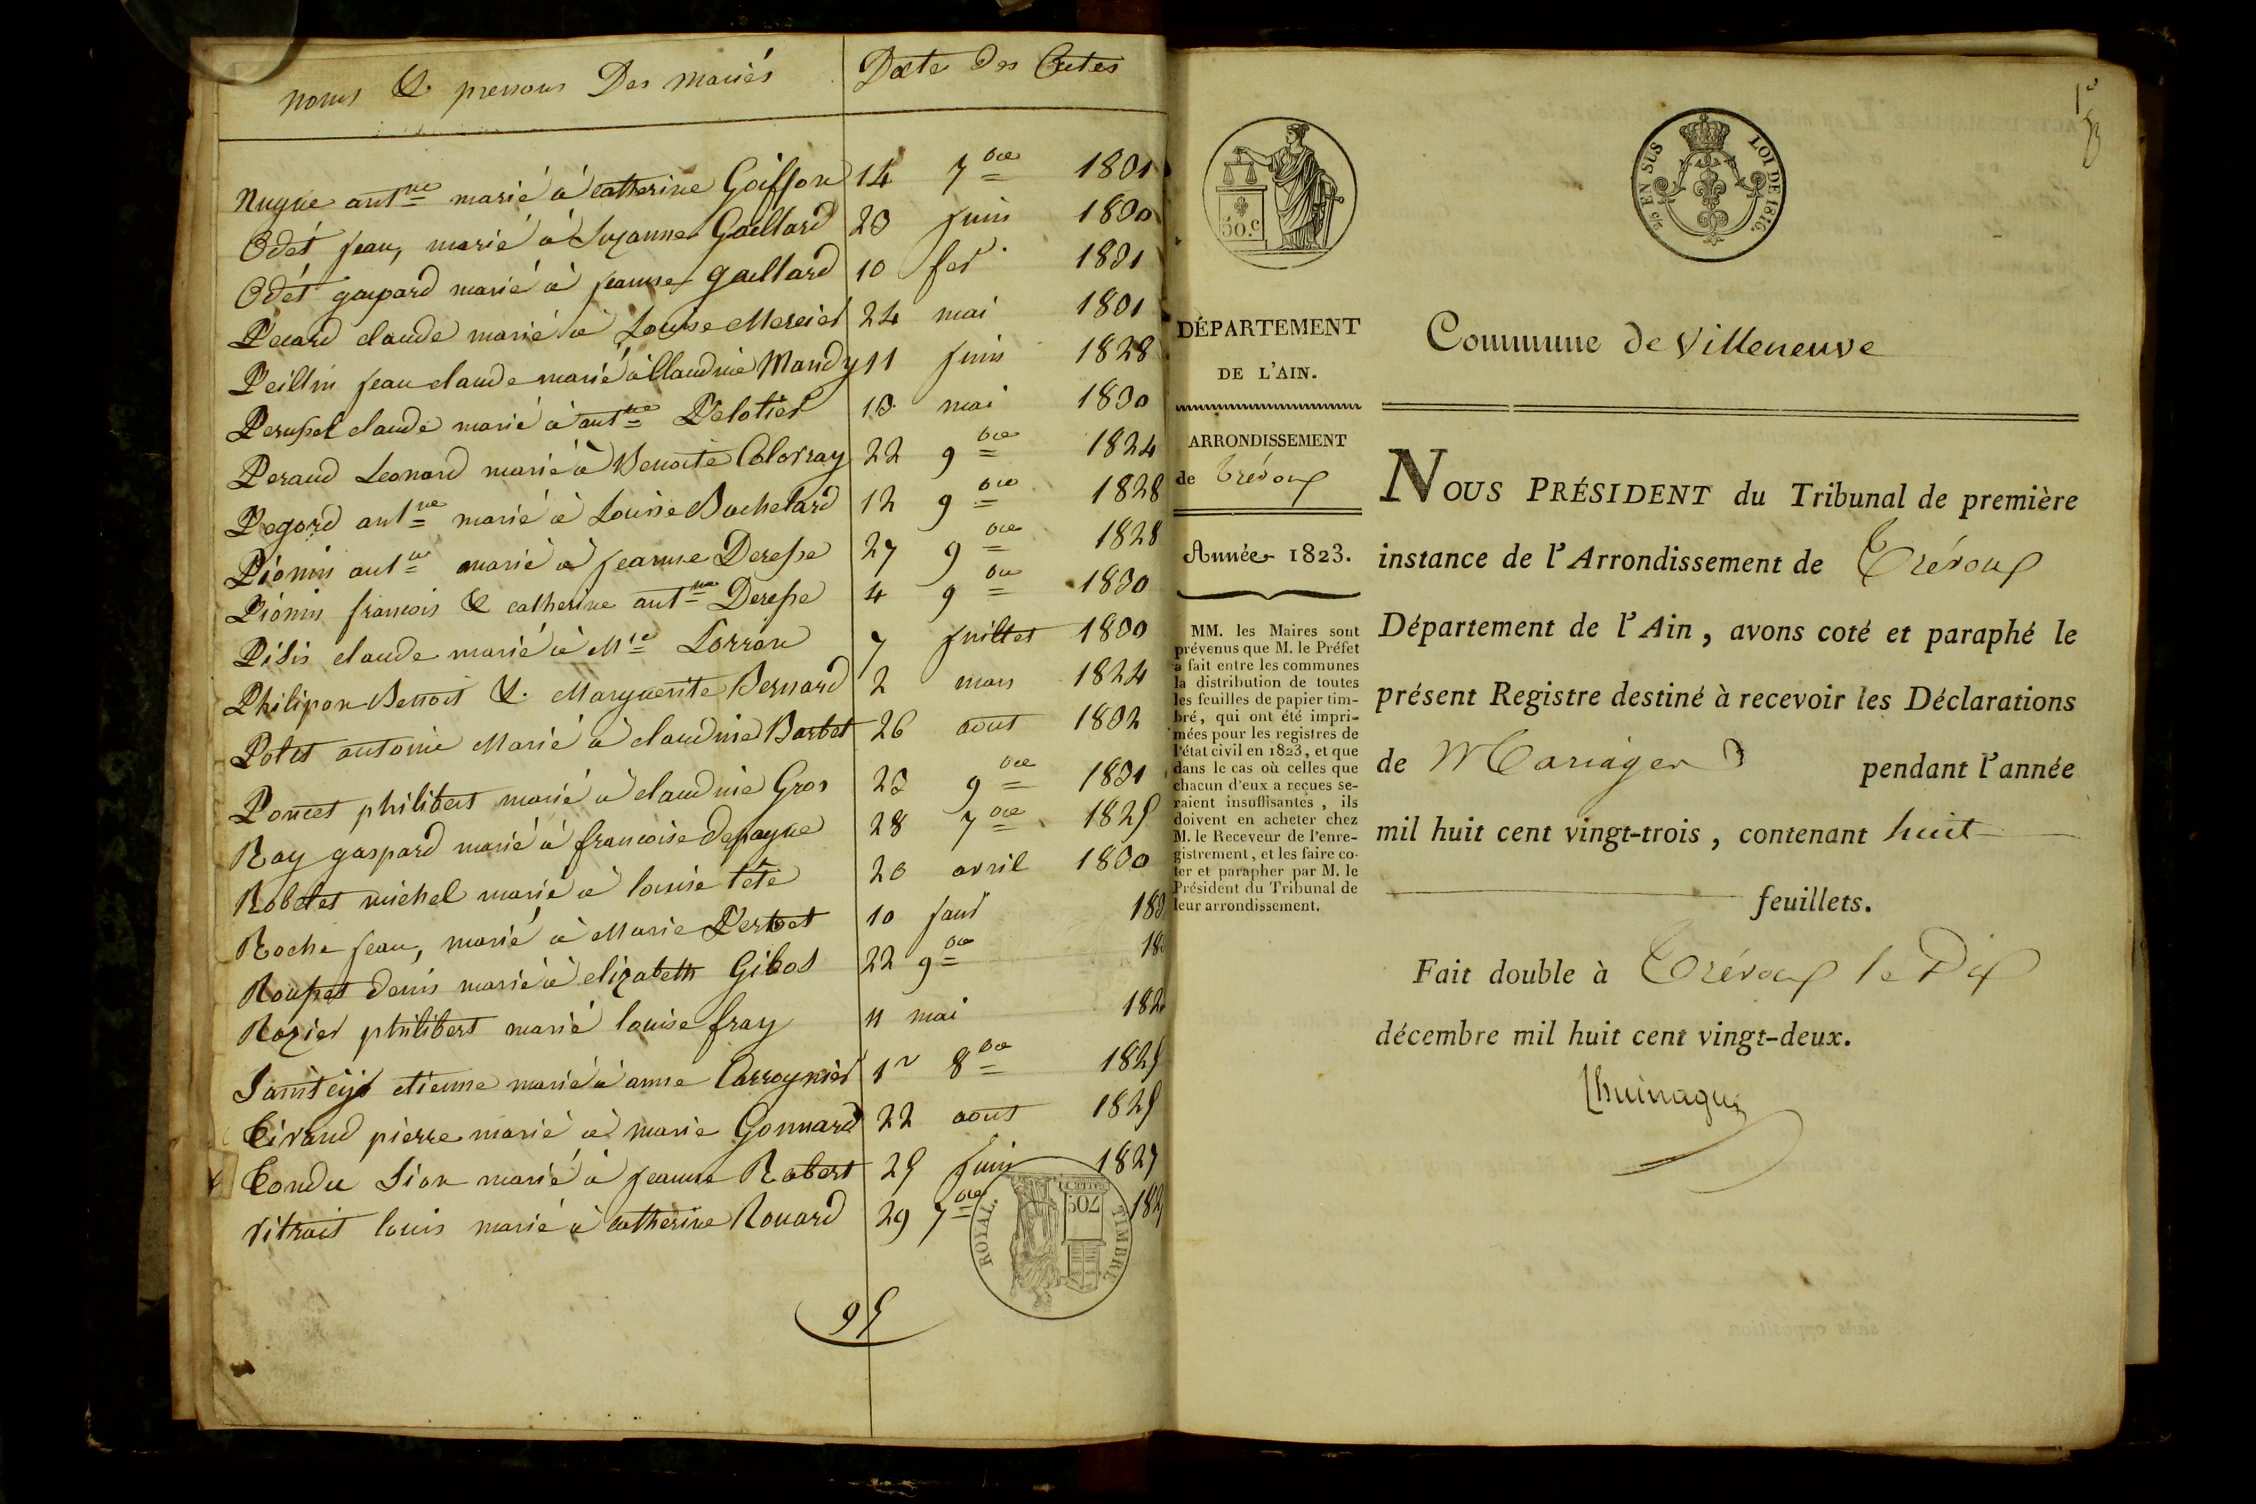 noms & prenoms Des mariés
Date des Actes
Nugue ant^ne marié à catherine Goiffon 14 7^bre 1831
Odet jean, marié à Suzanne Gaillard 23 juin 1830
Odét gaspard marié à jeanne gaillard 10 fev^r 1831
Pecard claude marié à Louise Mercier 24 mai 1831
Peillin jean claude marié à Claudine Mandy 11 juin 1828
claude marié à ant^ne Pelotier 13 mai 1830
Peraud Leonard marié à Benoite Colovray 22 9^bre 1824
Pegord ant^ne marié à Louise Bachelard 12 9^bre 1828
Piónin ant^ne marié à jeanne Deresse 27 9^bre 1828
Piónin francois & catherine ant^ne Deresse 4 9^bre 1830
claude marié à M^ie Lorron 7 juillet 1830
Philipon Benoit & Marguerite Bernard 2 mars 1824
Potet antoine Marié à claudine Barbet 26 aout 1832
Poncet philibert marié à claudine Gros 23 9^bre 1831
Ray gaspard marié à francoise depagne 28 7^bre 1825
Robelet michel marié à louise tête 20 avril 1830
Roche jean, marié à Marie Perbet 10 janv^r 183
Rousset denis marié à elizabeth 22 9^bre 18
Rozier philibert marié louise fray 11 mai 182
etienne marié à anne 1^r 8^bre 1825
Tivand pierre marié à marie Gonnard 22 aout 1825
Tondu Sion marié à jeanne Robert 25 juin 1827
Vitrait louis marié à catherine Rouard 29 7^bre 182
95
ROYAL.
TIMBRE
50.c
2/c EN SUS
LOI DE 1816.
1^e
DÉPARTEMENT
DE L'AIN.
ARRONDISSEMENT
de Trévoux
Année 1823.
MM. les Maires sont
prévenus que M. le Préfet
a fait entre les communes
la distribution de toutes
les feuilles de papier tim-
bré, qui ont été impri-
mées pour les registres de
l'état civil en 1823, et que
dans le cas où celles que
chacun d'eux a reçues se-
raient insuffisantes, ils
doivent en acheter chez
M. le Receveur de l'enre-
gistrement, et les faire co-
ter et parapher par M. le
Président du Tribunal de
leur arrondissement.
Commune de Villeneuve
NOUS PRÉSIDENT du Tribunal de première
instance de l'Arrondissement de Trévoux
Département de l'Ain, avons coté et paraphé le
présent Registre destiné à recevoir les Déclarations
de Mariages pendant l'année
mil huit cent vingt-trois, contenant huit
feuillets.
Fait double à Trévoux le Dix
décembre mil huit cent vingt-deux.